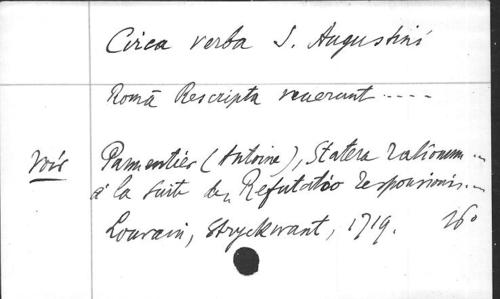 Circa verba S. Augustini
Româ Rescripta venerunt ....
voir Parmentier (Antoine), Statera rationum ...
à la suite de, Refutatio responsionis...
Louvain, Stryckwant, 1719. in 16º